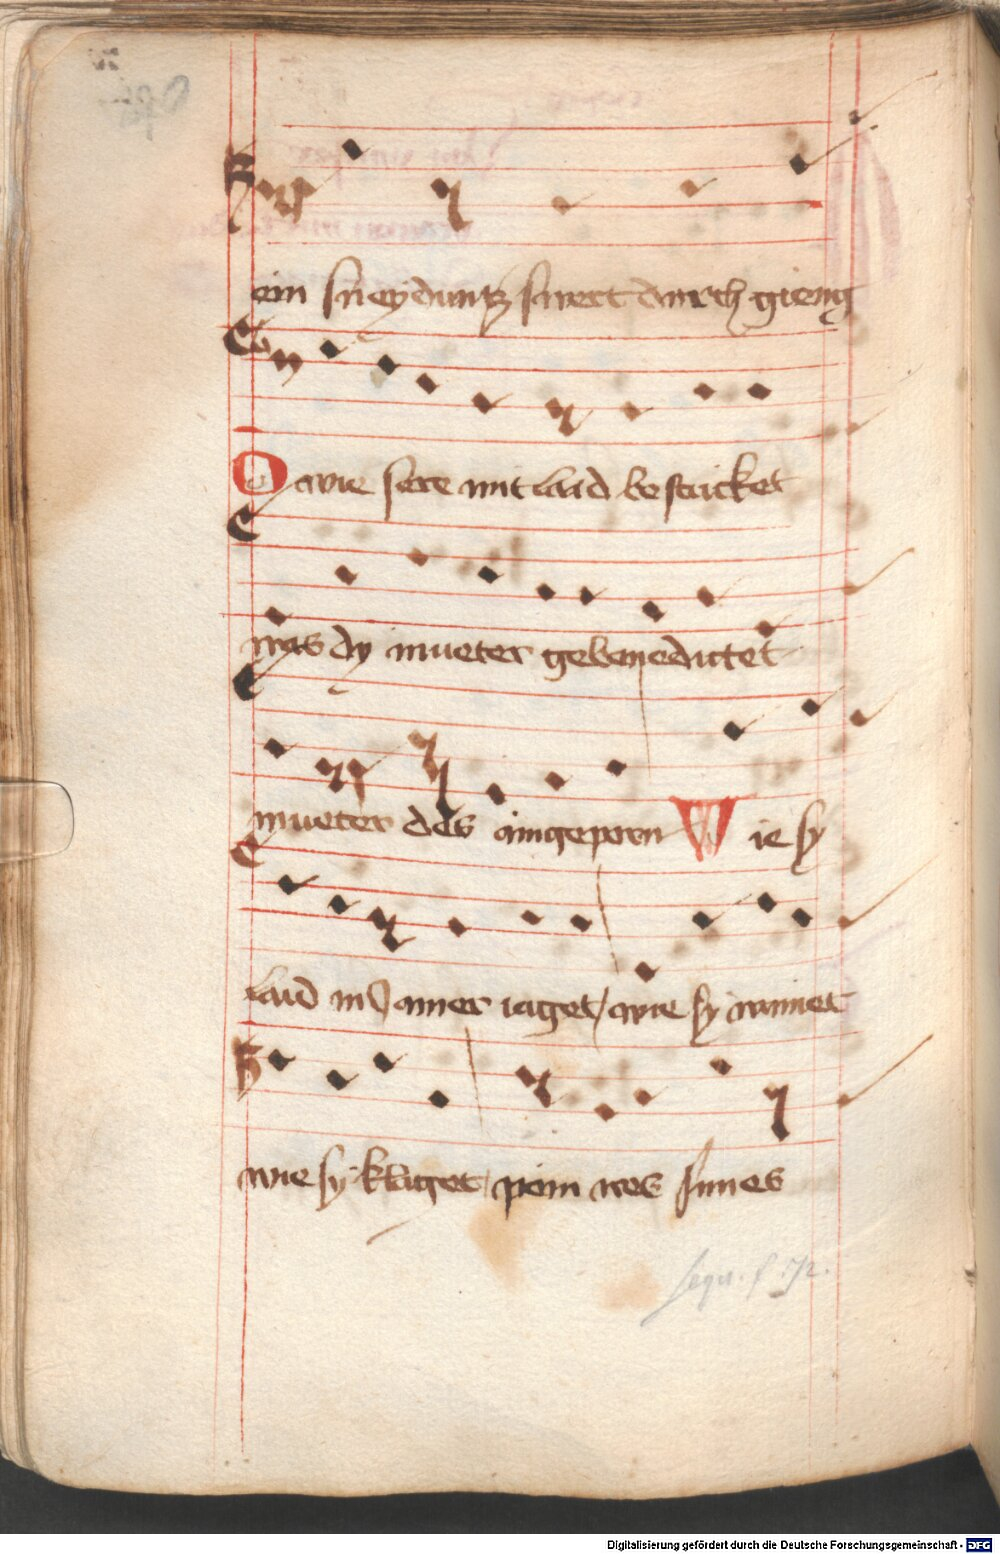 ein sneyduntz swert durch gieng
O wie sere mit laid bestricket
was dy mueter gebenedictet
mueter des aingeporn Wie sy
laid in Jamer iaget / wie sy wainet
wie sy klaget / pein wes sunes
sequ. f 172.
Digitalisierung gefördert durch die Deutsche Forschungsgemeinschaft - DFG